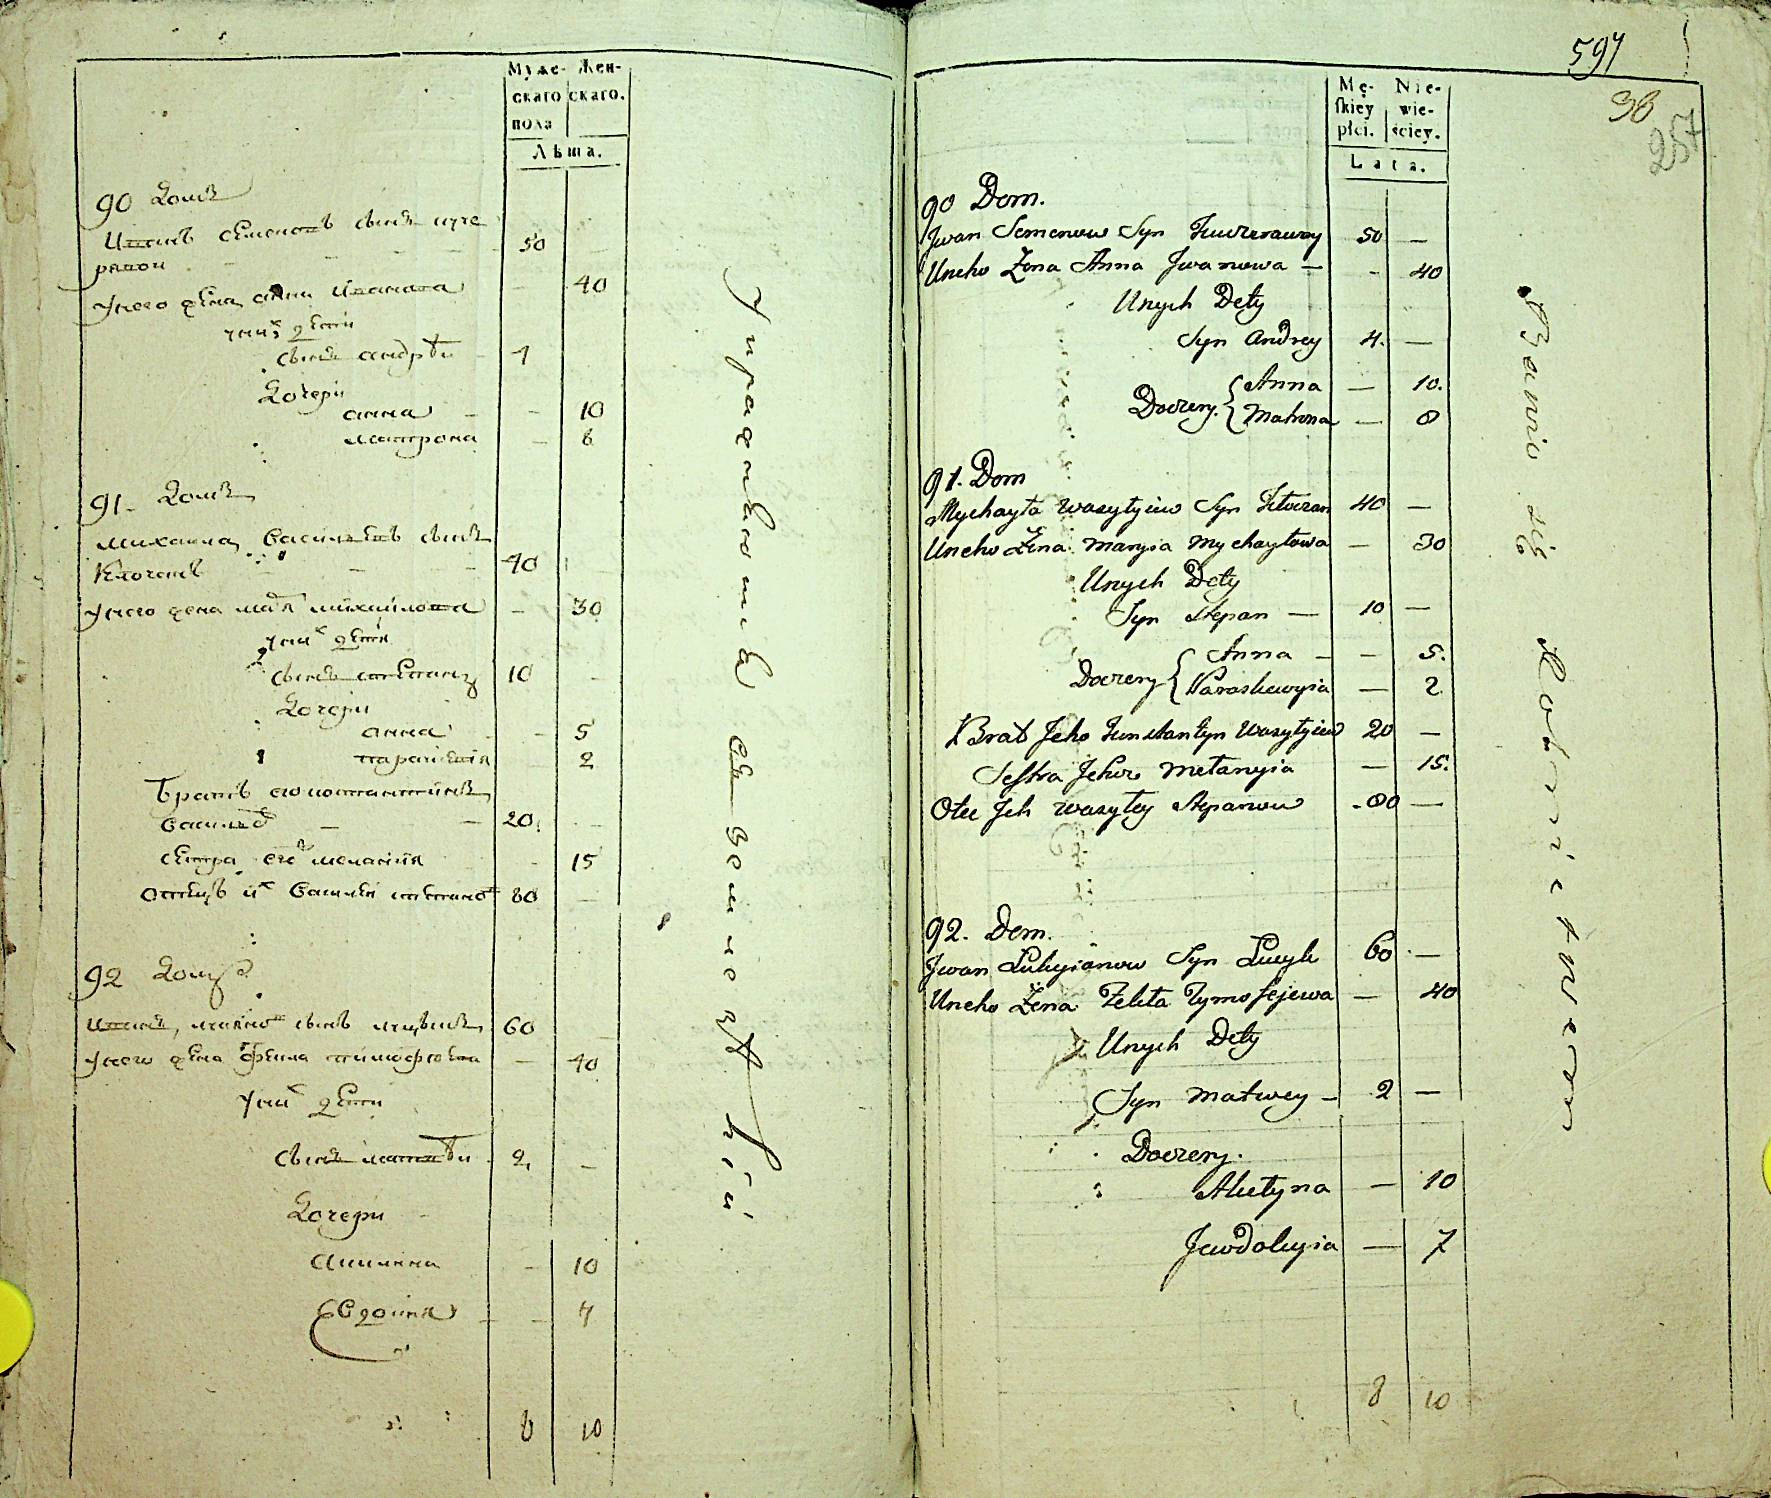 Муже- Жен-
скаго скаго.
пола
Лѣта.
90 Домъ
Иванъ Семеновъ сынъ куче
рявой 50
У него жена анна Иванова 40
у них дети
сынъ андрѣй 4
Дочери
анна 10
матрона 8
91. Домъ
михаила василевъ сынъ
Ключанъ 40
У него жена мария михайлова 30
у них дети
сынъ степанъ 10
Дочери
анна 5
параскевия 2
Братъ его константинъ
василевъ 20
сестра его мелания 15
Отецъ их василий степановъ 80
92 Домъ
Иванъ лукяновъ сынъ 60
У него жена фекла тимофеева 40
у них дети
сынъ матвѣй 2
Дочери
акилина 10
Евдокия 7
8 10
Упражняются в земледѣлїи
597
38
257
Mę- Nie-
skiey wie-
płci. ściey.
Lata.
90 Dom.
Jwan Semenow Syn Kuczerawoy 50 —
Uneho Żena Anna Jwanowa — - 40
Unych Dety
Syn Andrey 4. —
Doczery. { Anna — 10.
Matrona — 8
91. Dom
Mychayła Wasylyiew Syn Kluczan 40 —
Uneho Żena Maryia Mychayłowa — 30
Unych Dety
Syn Stepan — 10 —
Doczery { Anna — - 5.
Paraskewyia — 2
Brat Jeho Kunstantyn Wasylyiew 20 —
Sestra Jehor Mełanyia — 15.
Otec Jch Wasyley Stepanow - 80 —
92. Dom.
Jwan Lukyianow Syn 60 —
Uneho Żena Fekła Tymofejewa — 40
Unych Dety
Syn Matwey — 2 —
Doczery.
Akułyna — 10
Jewdokyia — 7
8 10
Bawio się Rolnictwem